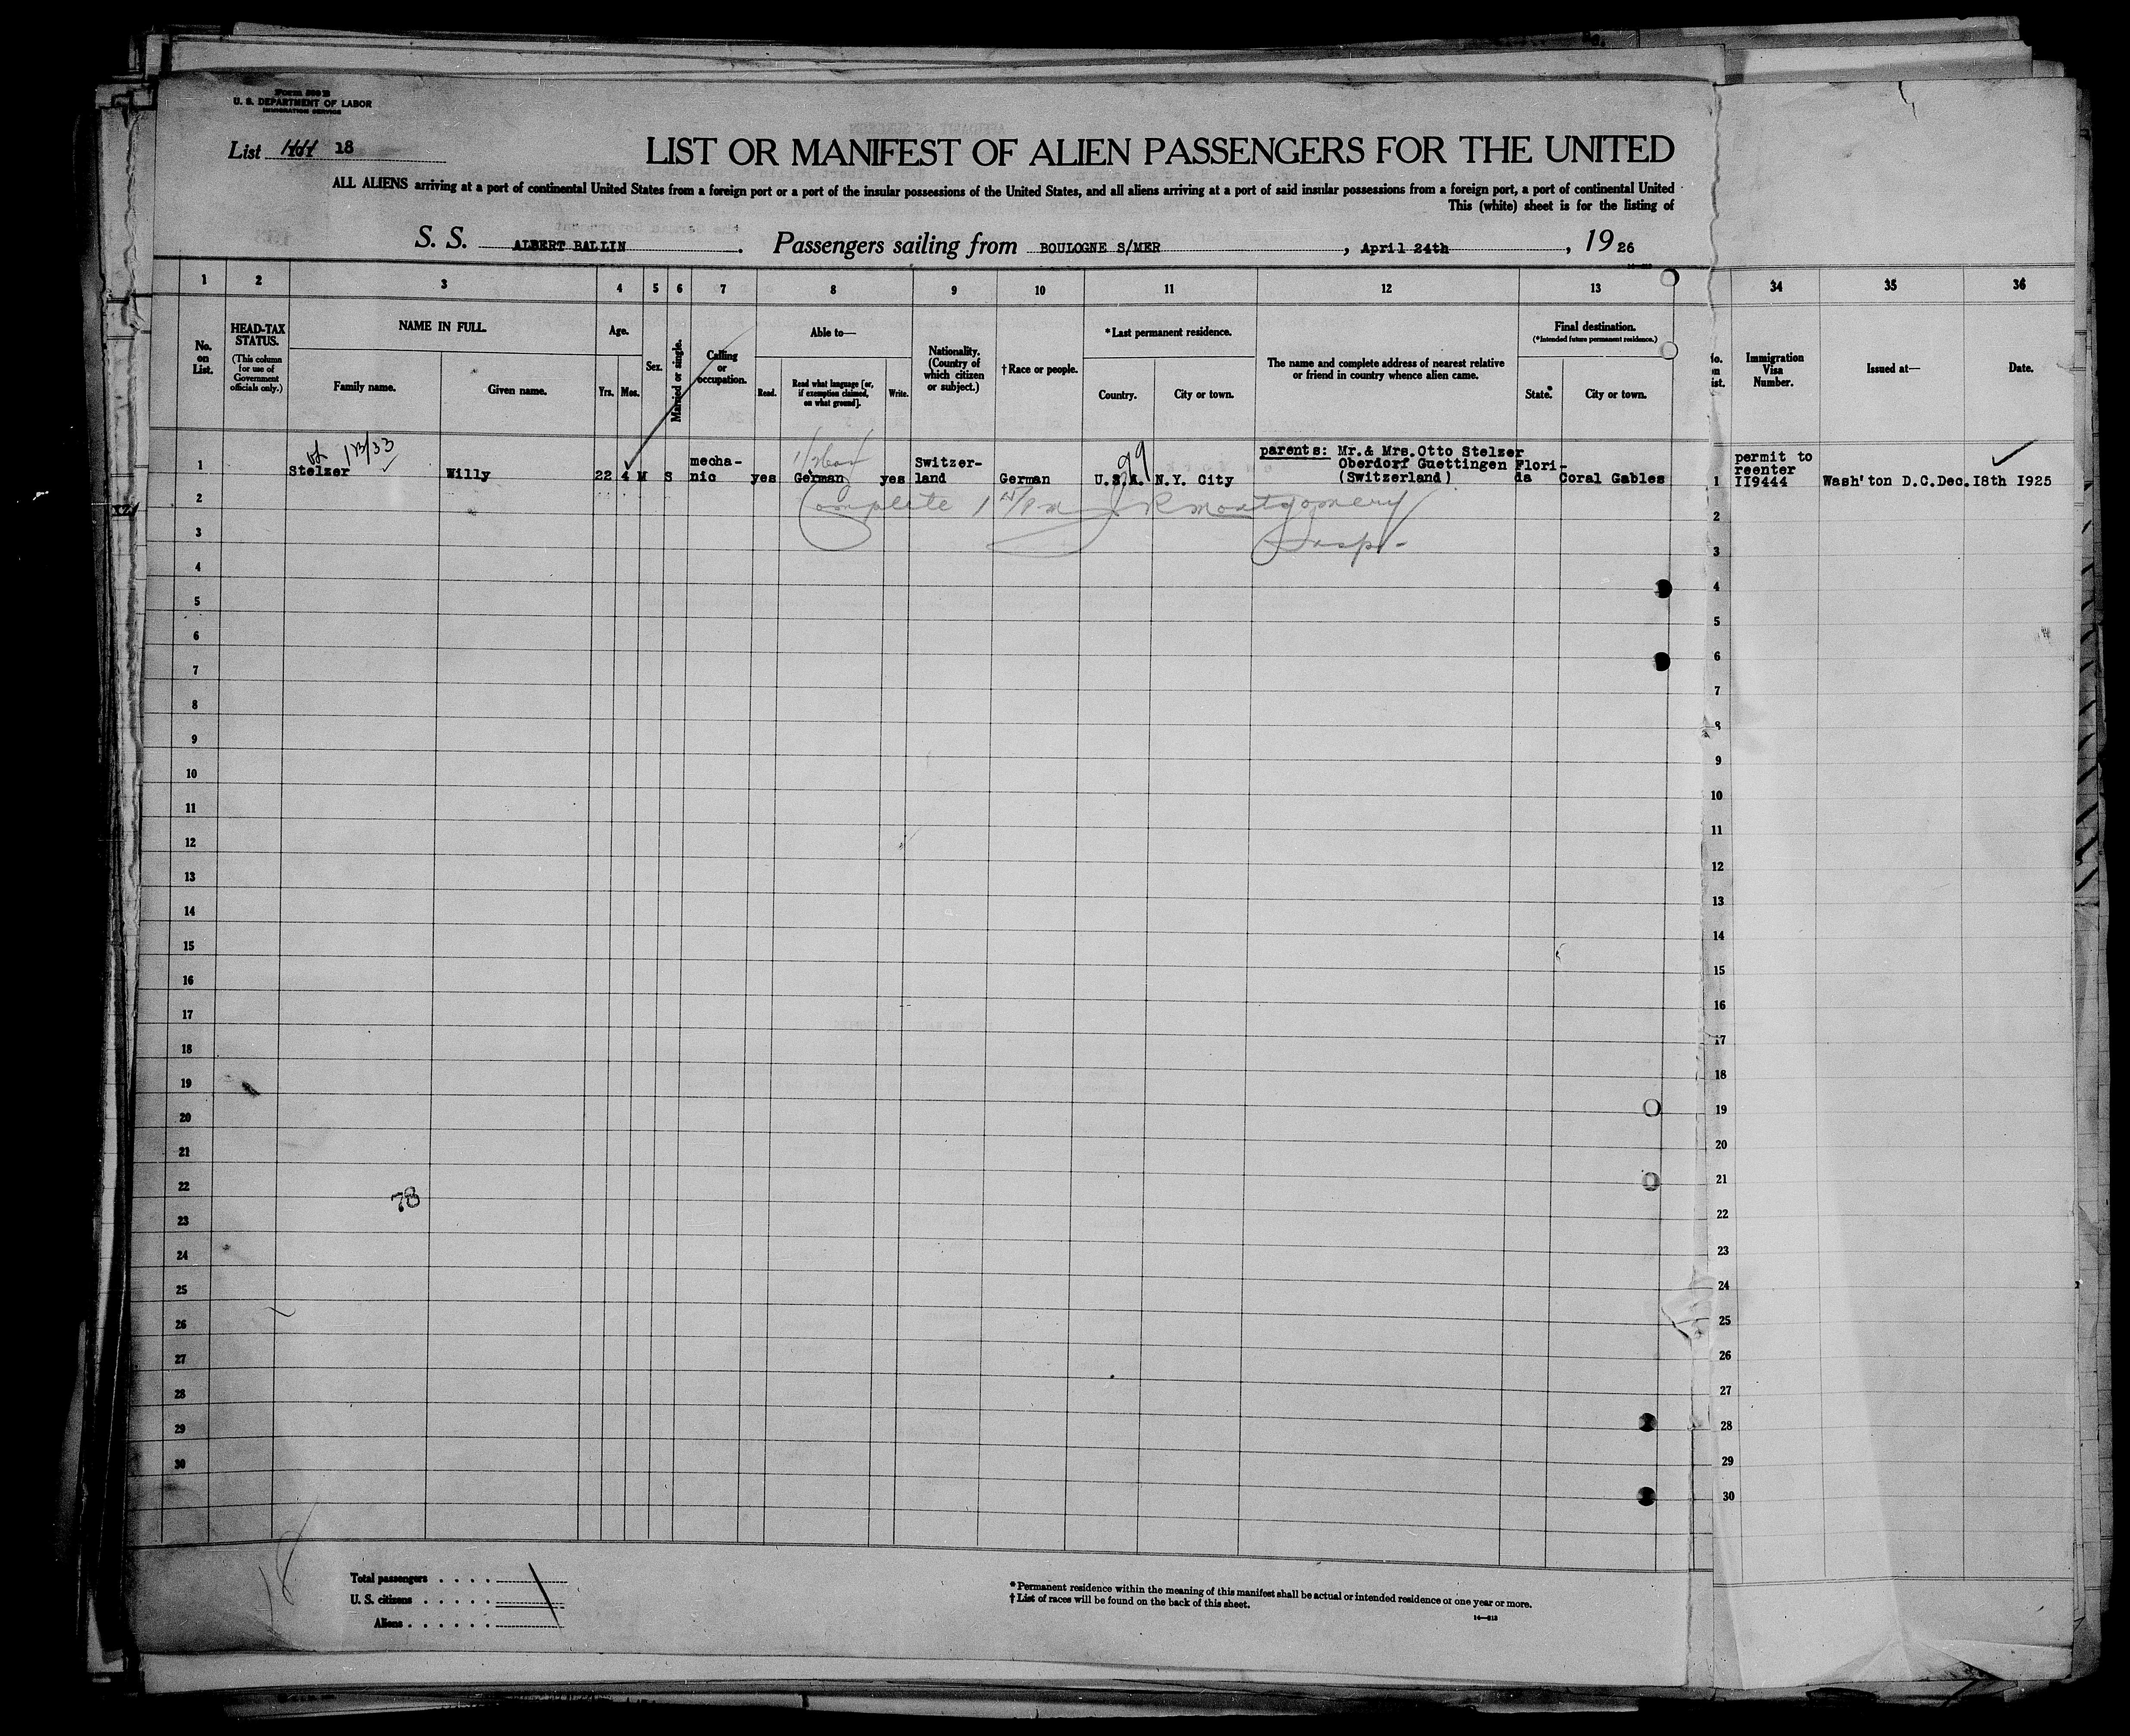 Form 500 B
U. S. DEPARTMENT OF LABOR
IMMIGRATION SERVICE
List 18
LIST OR MANIFEST OF ALIEN PASSENGERS FOR THE UNITED
ALL ALIENS arriving at a port of continental United States from a foreign port or a port of the insular possessions of the United States, and all aliens arriving at a port of said insular possessions from a foreign port, a port of continental United
This (white) sheet is for the listing of
S. S. ALBERT BALLIN. Passengers sailing from BOULOGNE S/MER, April 24th, 1926
1 2 3 4 5 6 7 8 9 10 11 12 13 34 35 36
No. on List.
HEAD-TAX STATUS.
(This column for use of Government officials only.)
NAME IN FULL.
Family name. Given name.
Age.
Yrs. Mos.
Sex.
Married or single.
Calling or occupation.
Able to—
Read. Read what language [or, if exemption claimed, on what ground]. Write.
Nationality. (Country of which citizen or subject.)
†Race or people.
*Last permanent residence.
Country. City or town.
The name and complete address of nearest relative or friend in country whence alien came.
Final destination.
(*Intended future permanent residence.)
State.* City or town.
No. on List.
Immigration Visa Number.
Issued at—
Date.
1 Stelzer Willy 22 4 M S mecha-nic yes German yes Switzer-land German U.S.A. N.Y. City parents: Mr.& Mrs.Otto Stelzer
Oberdorf Guettingen
(Switzerland) Flori-da Coral Gables
1 permit to reenter II9444 Wash'ton D.C.Dec.I8th I925
99
Complete Montgomery
Insp.
2
3
4
5
6
7
8
9
10
11
12
13
14
15
16
17
18
19
20
21
22
23
24
25
26
27
28
29
30
2
3
4
5
6
7
8
9
10
11
12
13
14
15
16
17
18
19
20
21
22
23
24
25
26
27
28
29
30
78
18
Total passengers . . . .
U. S. citizens . . . . .
Aliens . . . . . .
* Permanent residence within the meaning of this manifest shall be actual or intended residence of one year or more.
† List of races will be found on the back of this sheet.
14—213